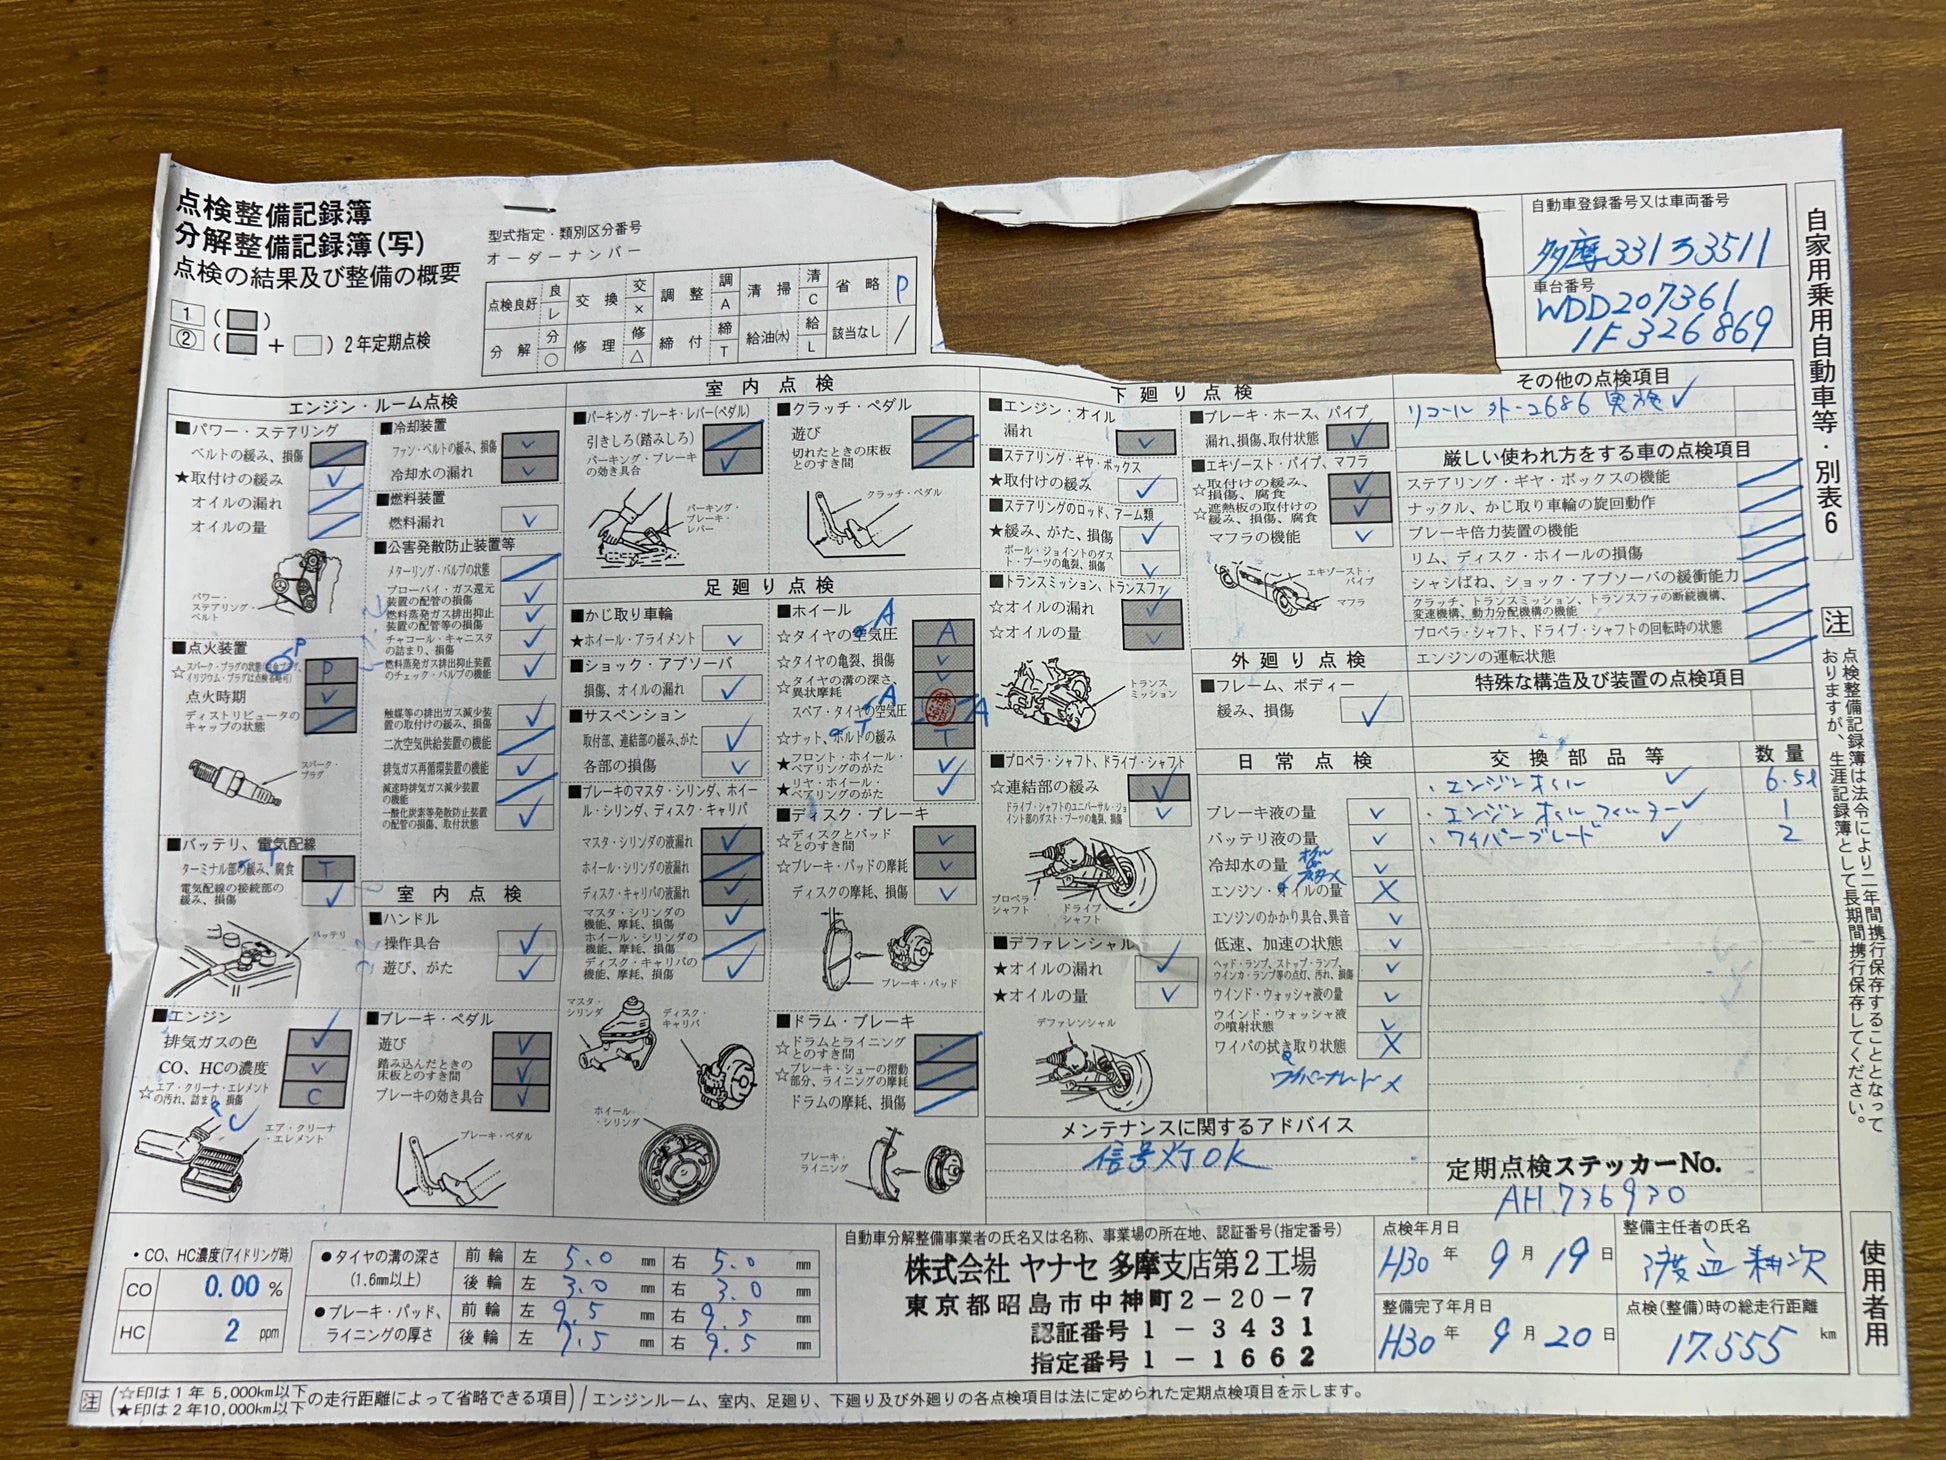 点検整備記録簿
分解整備記録簿(写)
点検の結果及び整備の概要
1 ( )
② ( + ) 2年定期点検
型式指定・類別区分番号
オーダーナンバー
点検良好 良 レ 交換 交 × 調整 調 A 清掃 清 C 省略 P
分解 分 ○ 修理 修 △ 締付 締 T 給油(水) 給 L 該当なし /
自動車登録番号又は車両番号
多摩331ろ3511
車台番号
WDD207361
1F326869
自家用乗用自動車等・別表6
エンジン・ルーム点検
■パワー・ステアリング
ベルトの緩み、損傷
★取付けの緩み ✓
オイルの漏れ
オイルの量
パワー・
ステアリング・
ベルト
■点火装置
P
☆スパーク・プラグの状態(白金プラグ、
イリジウム・プラグは点検省略可) P
点火時期 ✓
ディストリビュータの
キャップの状態
スパーク・
プラグ
■バッテリ、電気配線
T
ターミナル部の緩み、腐食 T
電気配線の接続部の
緩み、損傷 ✓
バッテリ
■エンジン
排気ガスの色 ✓
CO、HCの濃度 ✓
☆エア・クリーナ・エレメント
の汚れ、詰まり、損傷 C
C
エア・クリーナ
・エレメント
■冷却装置
ファン・ベルトの緩み、損傷 ✓
冷却水の漏れ ✓
■燃料装置
燃料漏れ ✓
■公害発散防止装置等
メターリング・バルブの状態
ブローバイ・ガス還元
装置の配管の損傷 ✓
燃料蒸発ガス排出抑止
装置の配管等の損傷 ✓
チャコール・キャニスタ
の詰まり、損傷 ✓
燃料蒸発ガス排出抑止装置
のチェック・バルブの機能 ✓
触媒等の排出ガス減少装
置の取付けの緩み、損傷 ✓
二次空気供給装置の機能
排気ガス再循環装置の機能 ✓
減速時排気ガス減少装置
の機能
一酸化炭素等発散防止装置
の配管の損傷、取付状態 ✓
室内点検
■ハンドル
操作具合 ✓
遊び、がた ✓
■ブレーキ・ペダル
遊び ✓
踏み込んだときの
床板とのすき間 ✓
ブレーキの効き具合 ✓
ブレーキ・ペダル
室内点検
■パーキング・ブレーキ・レバー(ペダル)
引きしろ(踏みしろ)
パーキング・ブレーキ
の効き具合 ✓
パーキング・
ブレーキ・
レバー
■クラッチ・ペダル
遊び
切れたときの床板
とのすき間
クラッチ・ペダル
足廻り点検
■かじ取り車輪
★ホイール・アライメント ✓
■ショック・アブソーバ
損傷、オイルの漏れ ✓
■サスペンション
取付部、連結部の緩み、がた ✓
各部の損傷 ✓
■ブレーキのマスタ・シリンダ、ホイー
ル・シリンダ、ディスク・キャリパ
マスタ・シリンダの液漏れ ✓
ホイール・シリンダの液漏れ
ディスク・キャリパの液漏れ ✓
マスタ・シリンダの
機能、摩耗、損傷 ✓
ホイール・シリンダの
機能、摩耗、損傷
ディスク・キャリパの
機能、摩耗、損傷 ✓
マスタ・
シリンダ
ディスク・
キャリパ
ホイール
・シリンダ
■ホイール
A
☆タイヤの空気圧 A
☆タイヤの亀裂、損傷 ✓
☆タイヤの溝の深さ、
異状摩耗 ✓
A
スペア・タイヤの空気圧 A
T
☆ナット、ボルトの緩み T
★フロント・ホイール・
ベアリングのがた ✓
★リヤ・ホイール・
ベアリングのがた ✓
■ディスク・ブレーキ
☆ディスクとパッド
とのすき間 ✓
☆ブレーキ・パッドの摩耗 ✓
ディスクの摩耗、損傷 ✓
ブレーキ・パッド
■ドラム・ブレーキ
☆ドラムとライニング
とのすき間
☆ブレーキ・シューの摺動
部分、ライニングの摩耗
ドラムの摩耗、損傷
ブレーキ・
ライニング
下廻り点検
■エンジン・オイル
漏れ ✓
■ステアリング・ギヤ・ボックス
★取付けの緩み ✓
■ステアリングのロッド、アーム類
★緩み、がた、損傷 ✓
ボール・ジョイントのダス
ト・ブーツの亀裂、損傷 ✓
■トランスミッション、トランスファ
☆オイルの漏れ ✓
☆オイルの量 ✓
トランス
ミッション
■プロペラ・シャフト、ドライブ・シャフト
☆連結部の緩み ✓
ドライブ・シャフトのユニバーサル・ジョ
イント部のダスト・ブーツの亀裂、損傷 ✓
プロペラ・
シャフト
ドライブ・
シャフト
■デファレンシャル
★オイルの漏れ ✓
★オイルの量 ✓
デファレンシャル
■ブレーキ・ホース、パイプ
漏れ、損傷、取付状態 ✓
■エキゾースト・パイプ、マフラ
☆取付けの緩み、
損傷、腐食 ✓
☆遮熱板の取付けの
緩み、損傷、腐食 ✓
マフラの機能 ✓
エキゾースト・
パイプ
マフラ
外廻り点検
■フレーム、ボディー
緩み、損傷 ✓
日常点検
ブレーキ液の量 ✓
バッテリ液の量 ✓
冷却水の量 ✓
エンジン・オイルの量 ×
エンジンのかかり具合、異音 ✓
低速、加速の状態 ✓
ヘッド・ランプ、ストップ・ランプ、
ウインカ・ランプ等の点灯、汚れ、損傷 ✓
ウインド・ウォッシャ液の量 ✓
ウインド・ウォッシャ液
の噴射状態 ✓
ワイパの拭き取り状態 ×
ワイパーブレード ×
メンテナンスに関するアドバイス
信号灯OK
その他の点検項目
リコール 外-2686 実施 ✓
厳しい使われ方をする車の点検項目
ステアリング・ギヤ・ボックスの機能
ナックル、かじ取り車輪の旋回動作
ブレーキ倍力装置の機能
リム、ディスク・ホイールの損傷
シャシばね、ショック・アブソーバの緩衝能力
クラッチ、トランスミッション、トランスファの断続機構、
変速機構、動力分配機構の機能
プロペラ・シャフト、ドライブ・シャフトの回転時の状態
エンジンの運転状態
特殊な構造及び装置の点検項目
交換部品等 数量
・エンジンオイル ✓ 6.5ℓ
・エンジンオイルフィルター ✓ 1
・ワイパーブレード ✓ 2
定期点検ステッカーNo.
AH736930
注 点検整備記録簿は法令により二年間携行保存することとなって
おりますが、生涯記録簿として長期間携行保存してください。
使用者用
・CO、HC濃度(アイドリング時)
CO 0.00 %
HC 2 ppm
●タイヤの溝の深さ
(1.6mm以上)
前輪 左 5.0 mm 右 5.0 mm
後輪 左 3.0 mm 右 3.0 mm
●ブレーキ・パッド、
ライニングの厚さ
前輪 左 9.5 mm 右 9.5 mm
後輪 左 9.5 mm 右 9.5 mm
自動車分解整備事業者の氏名又は名称、事業場の所在地、認証番号(指定番号)
株式会社 ヤナセ 多摩支店第2工場
東京都昭島市中神町2-20-7
認証番号 1-3431
指定番号 1-1662
点検年月日
H30年 9月 19日
整備完了年月日
H30年 9月 20日
整備主任者の氏名
渡辺 耕次
点検(整備)時の総走行距離
17,555 km
注 (☆印は1年 5,000km以下
★印は2年10,000km以下 の走行距離によって省略できる項目) / エンジンルーム、室内、足廻り、下廻り及び外廻りの各点検項目は法に定められた定期点検項目を示します。